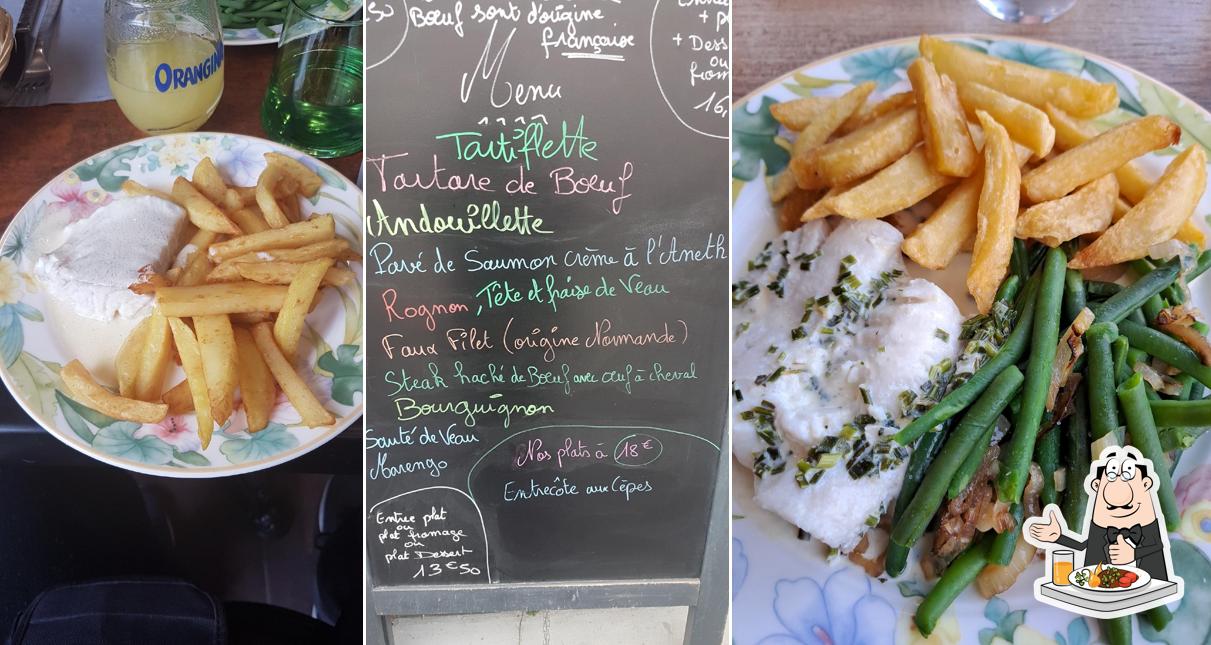 ORANGINA
50
Bœuf sont d'origine
française
Menu
Tartiflette
Tartare de Bœuf
Andouillette
Pavé de Saumon crème à l'Aneth
Rognon, Tête et fraise de Veau
Faux Filet (origine Normande)
Steak haché de Bœuf avec œuf à cheval
Bourguignon
Sauté de Veau
Marengo
Entrée plat
ou
plat fromage
ou
plat Dessert
13€50
Nos plats à 18€
Entrecôte aux Cèpes
+ p
+ Dess
ou
from
16,